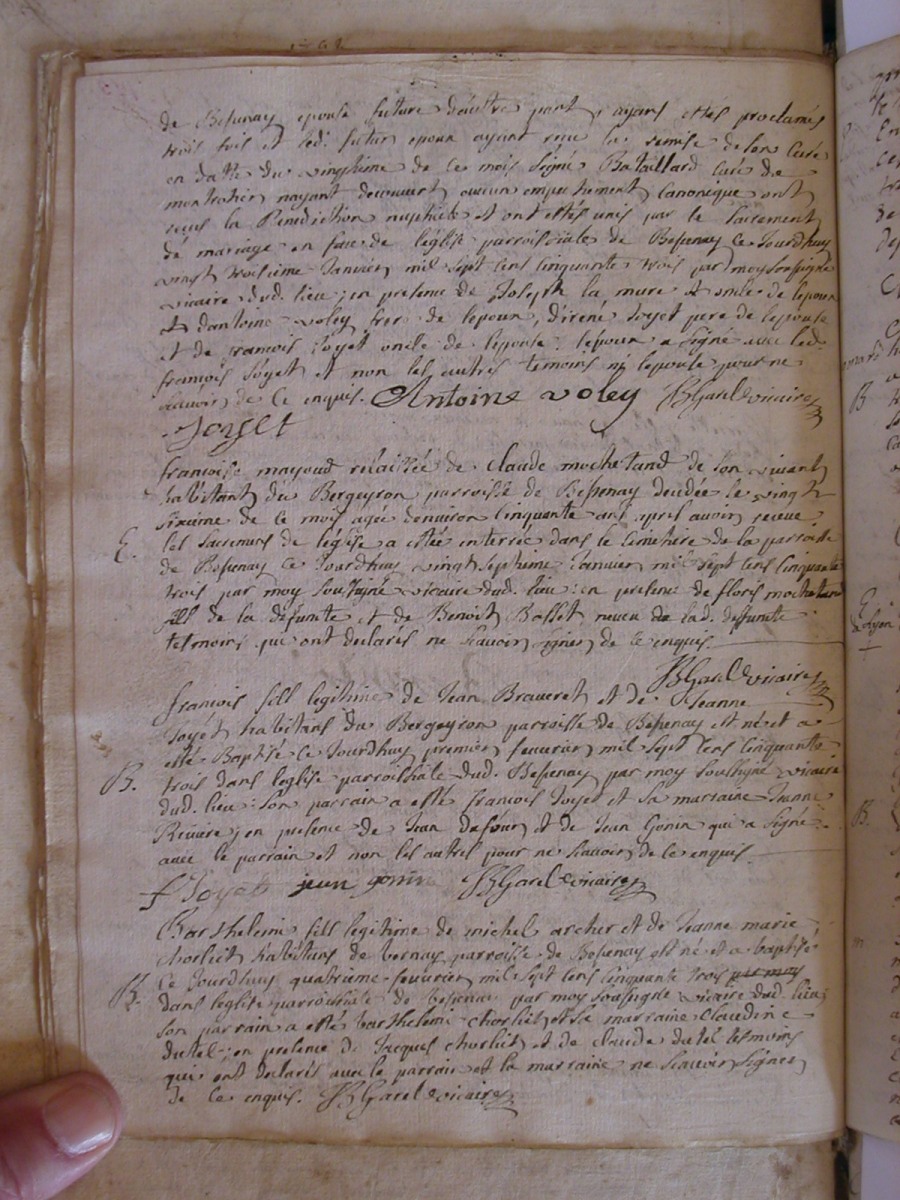 de Bessenay epouse future d'autre part, ayans estés proclamés
trois fois et led. futur epoux ayant reçu la remise de son Curé
en datte du vingtieme de ce mois signé Bataillard curé de
montrotier nayant decouvert aucun empechement canonique ont
reçus la Benediction nuptiale et ont estés unis par le Sacrement
de mariage en face de l'église parroissiale de Bessenay ce Jourdhuy
vingt troisieme Janvier mil sept cens cinquante trois par moy soussigné
vicaire dud. lieu; en presence de Joseph la mure oncle de lepoux
dantoine voley frere de lepoux, d'irené Joyet pere de lepouse
et de françois Joyet oncle de lepouse: lepoux a signé avec led.
françois Joyet et non les autres temoins ny lepouse pour ne
sçavoir de ce enquis. Antoine voley JB Garel vicaire
Joyet
françoise mayoud relaissée de claude mochetand de son vivant
habitant du Bergeyron parroisse de Bessenay decedée le vingt
sixieme de ce mois agée denviron cinquante ans apres avoir receue
E. les sacremens de leglise a estée interrée dans le cimetiere de la parroisse
de Bessenay ce Jourdhuy vingt septieme Janvier mil sept cens cinquante
trois par moy soussigné vicaire dud. lieu: en presence de floris mochetand
fils de la defunte et de Benoit Basset neveu de lad. deffunte
tesmoins qui ont declarés ne sçavoir signer de ce enquis.
JB Garel vicaire
françois fils legitime de Jean Braveret et de Jeanne
Joyet habitans du Bergeyron parroisse de Bessenay est né et a
esté Baptisé ce Jourdhuy premier fevrier mil sept cens cinquante
B. trois dans leglise parroissiale dud. Bessenay par moy soussigné vicaire
dud. lieu: son parrain a esté françois Joyet et sa marraine Jeanne
Riviere; en presence de Jean dufour et de Jean Gonin qui a signé
avec le parrain et non les autres pour ne sçavoir de ce enquis.
f Joyet jean gonin JB Garel vicaire
Barthelemi fils legitime de michel archer et de Jeanne marie
chorliet habitans de bernay parroisse de Bessenay est né et a baptisé
B. ce Jourdhuy quatrieme fevrier mil sept cens cinquante trois par moy
dans leglise parroissiale de Bessenay par moy soussigné vicaire dud. lieu;
son parrain a esté barthelemi chorliet et sa marraine claudine
dutel; en presence de Jacques chorliet et de claude dutel tesmoins
qui ont declarés avec le parrain et la marraine ne sçavoir signer
de ce enquis. JB Garel vicaire